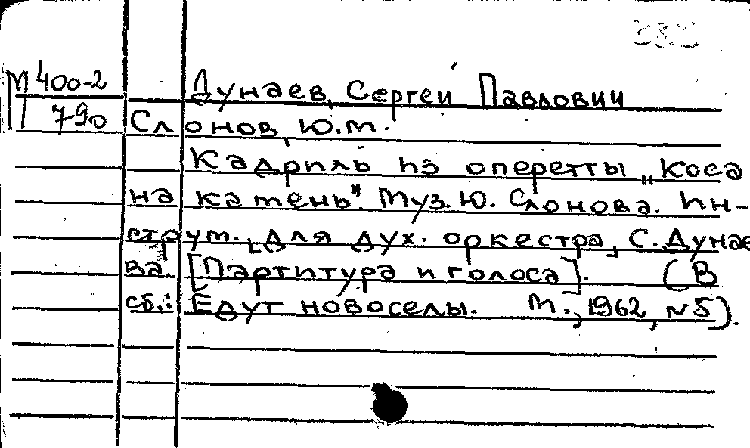 М 400-2
790
Дунаев, Сергей Павлович
Слонов, Ю.М.
Кадриль из оперетты „Коса
на камень". Муз. Ю. Слонова. Ин-
струм. [для дух. оркестра] С. Дунае
ва. [Партитура и голоса]. (В
сб.: Едут новоселы. М., 1962, №5).